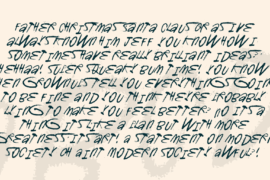 FATHER CHRISTMAS SANTA CLAUS OR AS I'VE
ALWAYS KNOWN HIM JEFF YOU KNOW HOW I
SOMETIMES HAVE REALLY BRILLIANT IDEAS?
HEHHAA! SUPER SQUEAKY BUM TIME! YOU KNOW
WHEN GROWNUPS TELL YOU EVERYTHING'S GOING
TO BE FINE AND YOU THINK THEY'RE PROBABLY
LYING TO MAKE YOU FEEL BETTER? NO IT'S A
THING IT'S LIKE A PLAN BUT WITH MORE
GREATNESS IT'S ART! A STATEMENT ON MODERN
SOCIETY OH AIN'T MODERN SOCIETY AWFUL!